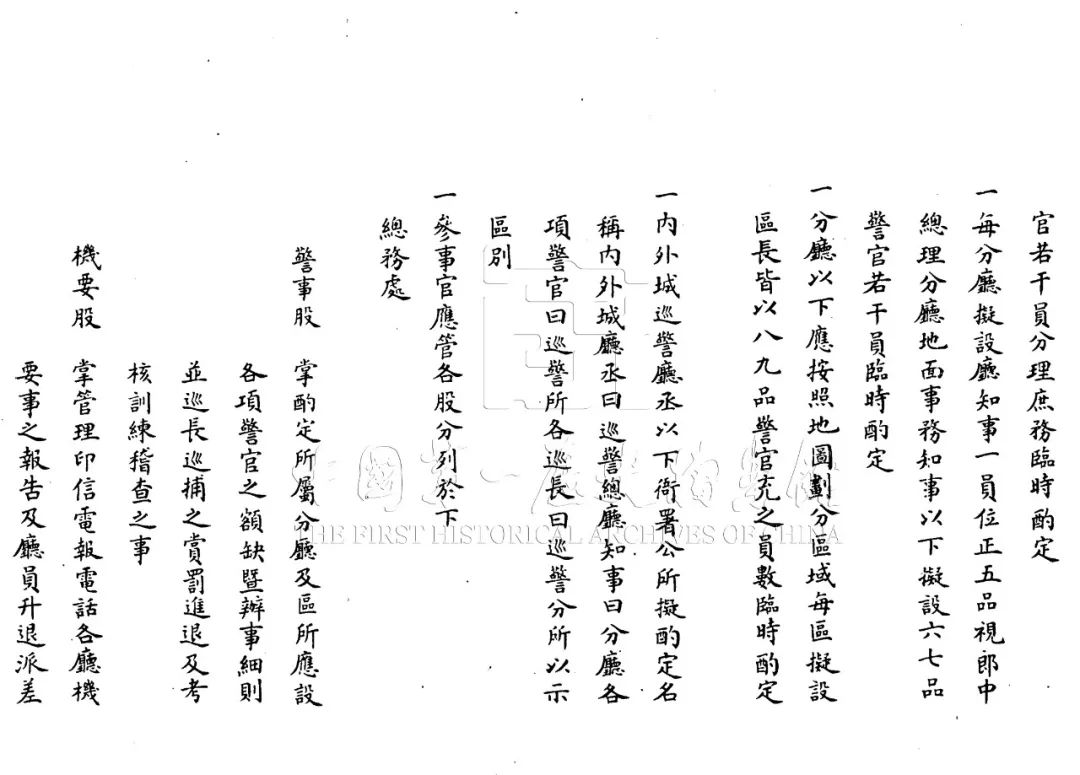 官若干員分理庶務臨時酌定
一每分廳擬設廳知事一員位正五品視郎中
總理分廳地面事務知事以下擬設六七品
警官若干員臨時酌定
一分廳以下應按照地圖劃分區域每區擬設
區長皆以八九品警官充之員數臨時酌定
一内外城巡警廳丞以下衙署公所擬酌定名
稱内外城廳丞曰巡警總廳知事曰分廳各
項警官曰巡警所各巡長曰巡警分所以示
區别
一參事官應管各股分列於下
總務處
警事股 掌酌定所屬分廳及區所應設
各項警官之額缺暨辦事細則
並巡長巡捕之賞罰進退及考
核訓練稽查之事
機要股 掌管理印信電報電話各廳機
要事之報告及廳員升退派差
中國第一歷史檔案館
THE FIRST HISTORICAL ARCHIVES OF CHINA